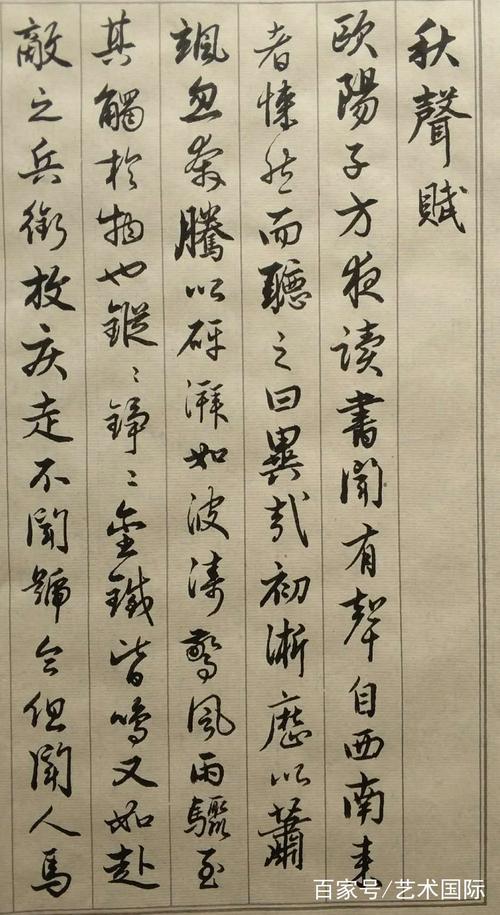 秋聲賦
歐陽子方夜读書聞有聲自西南来
者悚然而聽之曰異哉初淅歷以蕭
颯忽奔騰以砰湃如波濤驚風雨驟至
其觸於物也鏦〻錚〻金鐵皆鳴又如赴
敵之兵銜枚疾走不聞號令但聞人馬
百家号/艺术国际